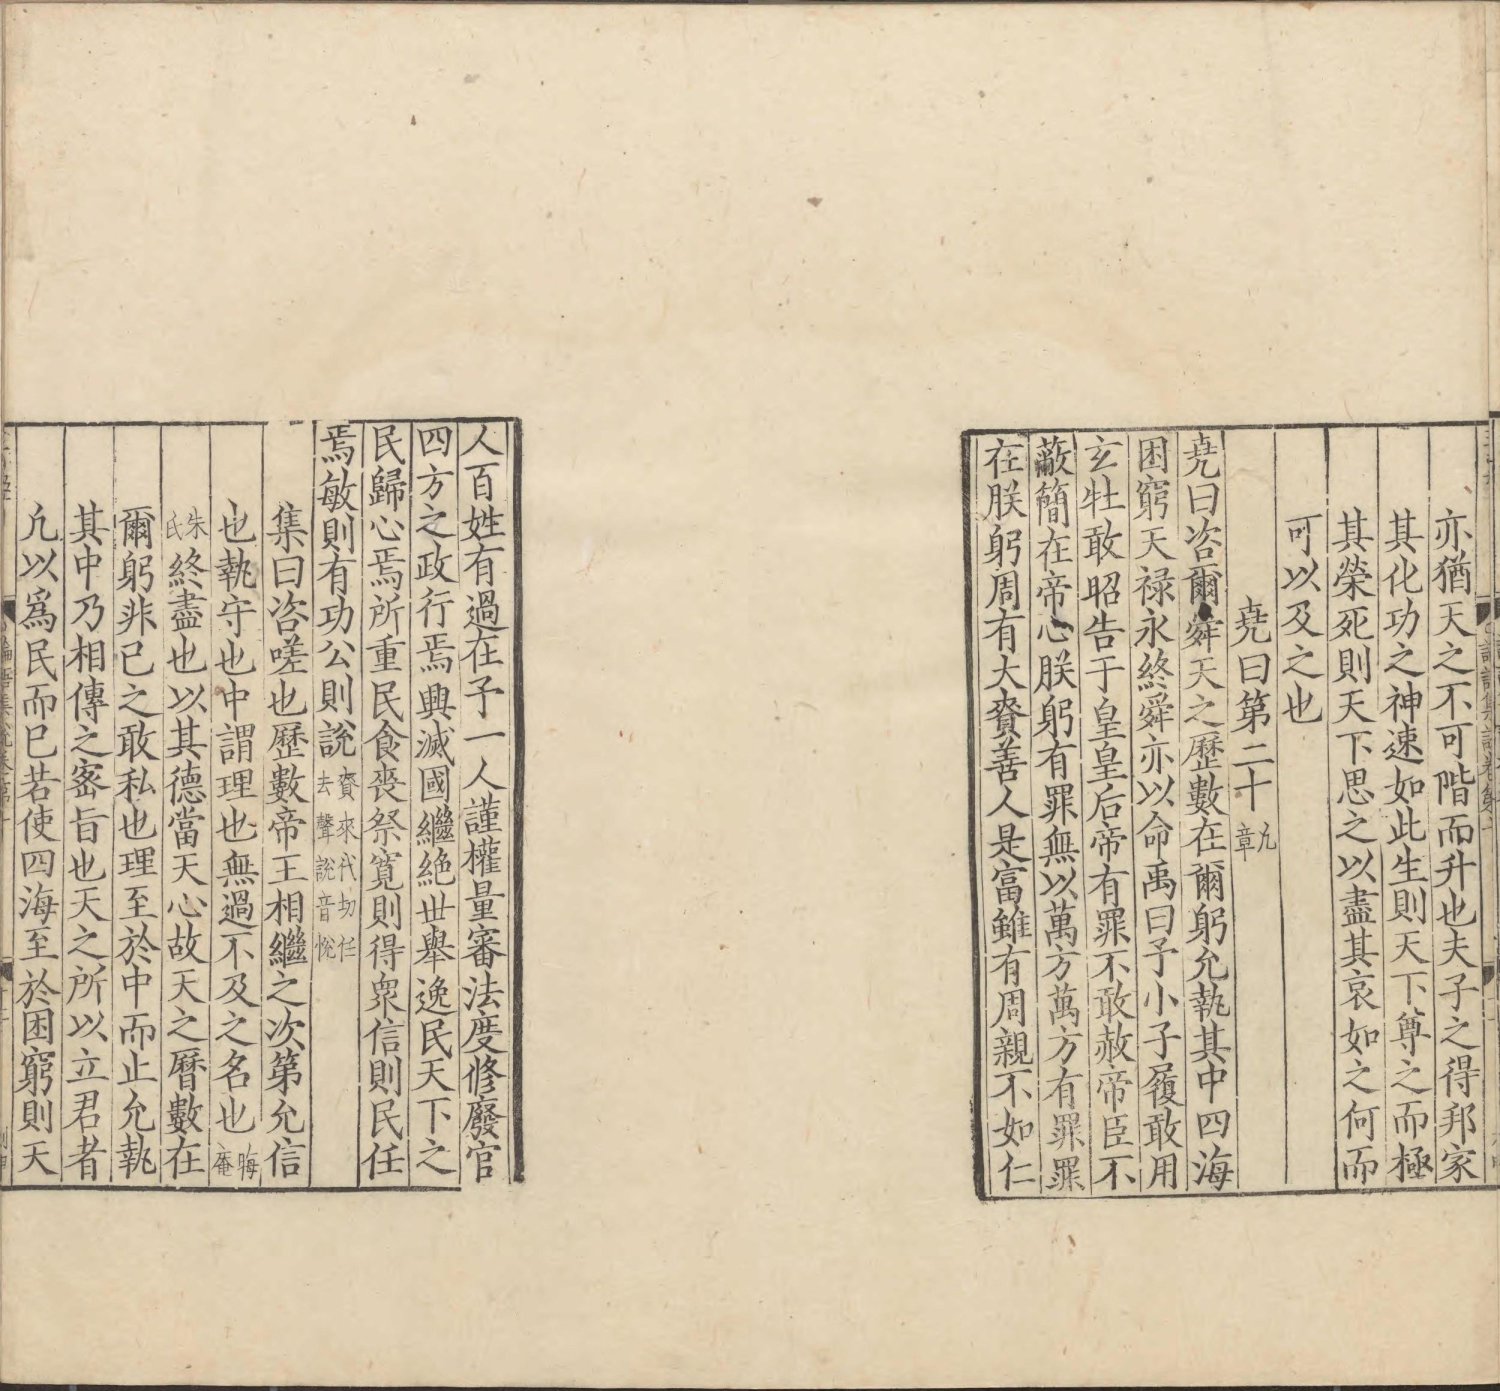 亦猶天之不可階而升也夫子之得邦家
其化功之神速如此生則天下尊之而極
其榮死則天下思之以盡其哀如之何而
可以及之也
堯曰第二十凡章
堯曰咨爾舜天之歷數在爾躬允執其中四海
困窮天祿永終舜亦以命禹曰予小子履敢用
玄牡敢昭告于皇皇后帝有罪不敢赦帝臣不
蔽簡在帝心朕躬有罪無以萬方萬方有罪罪
在朕躬周有大賚善人是富雖有周親不如仁
人百姓有過在予一人謹權量審法度修廢官
四方之政行焉興滅國繼絕世舉逸民天下之
民歸心焉所重民食喪祭寬則得衆信則民任
焉敏則有功公則說賚來代切任去聲說音悅
集曰咨嗟也歷數帝王相繼之次第允信
也執守也中謂理也無過不及之名也晦庵
朱氏終盡也以其德當天心故天之曆數在
爾躬非己之敢私也理至於中而止允執
其中乃相傳之密旨也天之所以立君者
凡以爲民而已若使四海至於困窮則天